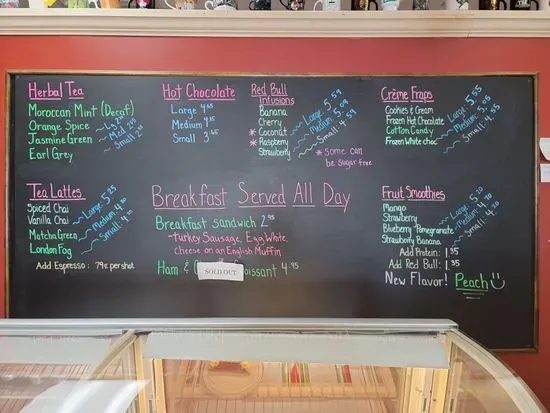 Herbal Tea
Moroccan Mint (Decaf)
Orange Spice
Jasmine Green
Earl Grey
Hot Chocolate
Large 4.65
Medium 4.15
Small 3.65
Red Bull
Infusions
Banana
Cherry
* Coconut
* Raspberry
Strawberry
Large 5.59
Medium 5.09
Small 4.59
* Some can
be Sugar free
Crème Fraps
Cookies & Cream
Frozen Hot Chocolate
Cotton Candy
Frozen White choc
Large 5.55
Medium 5.05
Small 4.55
Tea Lattes
Spiced Chai
Vanilla Chai
Matcha Green
London Fog
Large 5.25
Medium 4.70
Small 4.20
Add Espresso: 79¢ per shot
Breakfast Served All Day
Breakfast Sandwich 2.95
Turkey Sausage, Egg White,
Cheese on an English Muffin
Ham & Croissant 4.95
SOLD OUT
Fruit Smoothies
Mango
Strawberry
Blueberry Pomegranate
Strawberry Banana
Large 5.20
Medium 4.70
Small 4.20
Add Protein: 1.35
Add Red Bull: 1.35
New Flavor! Peach